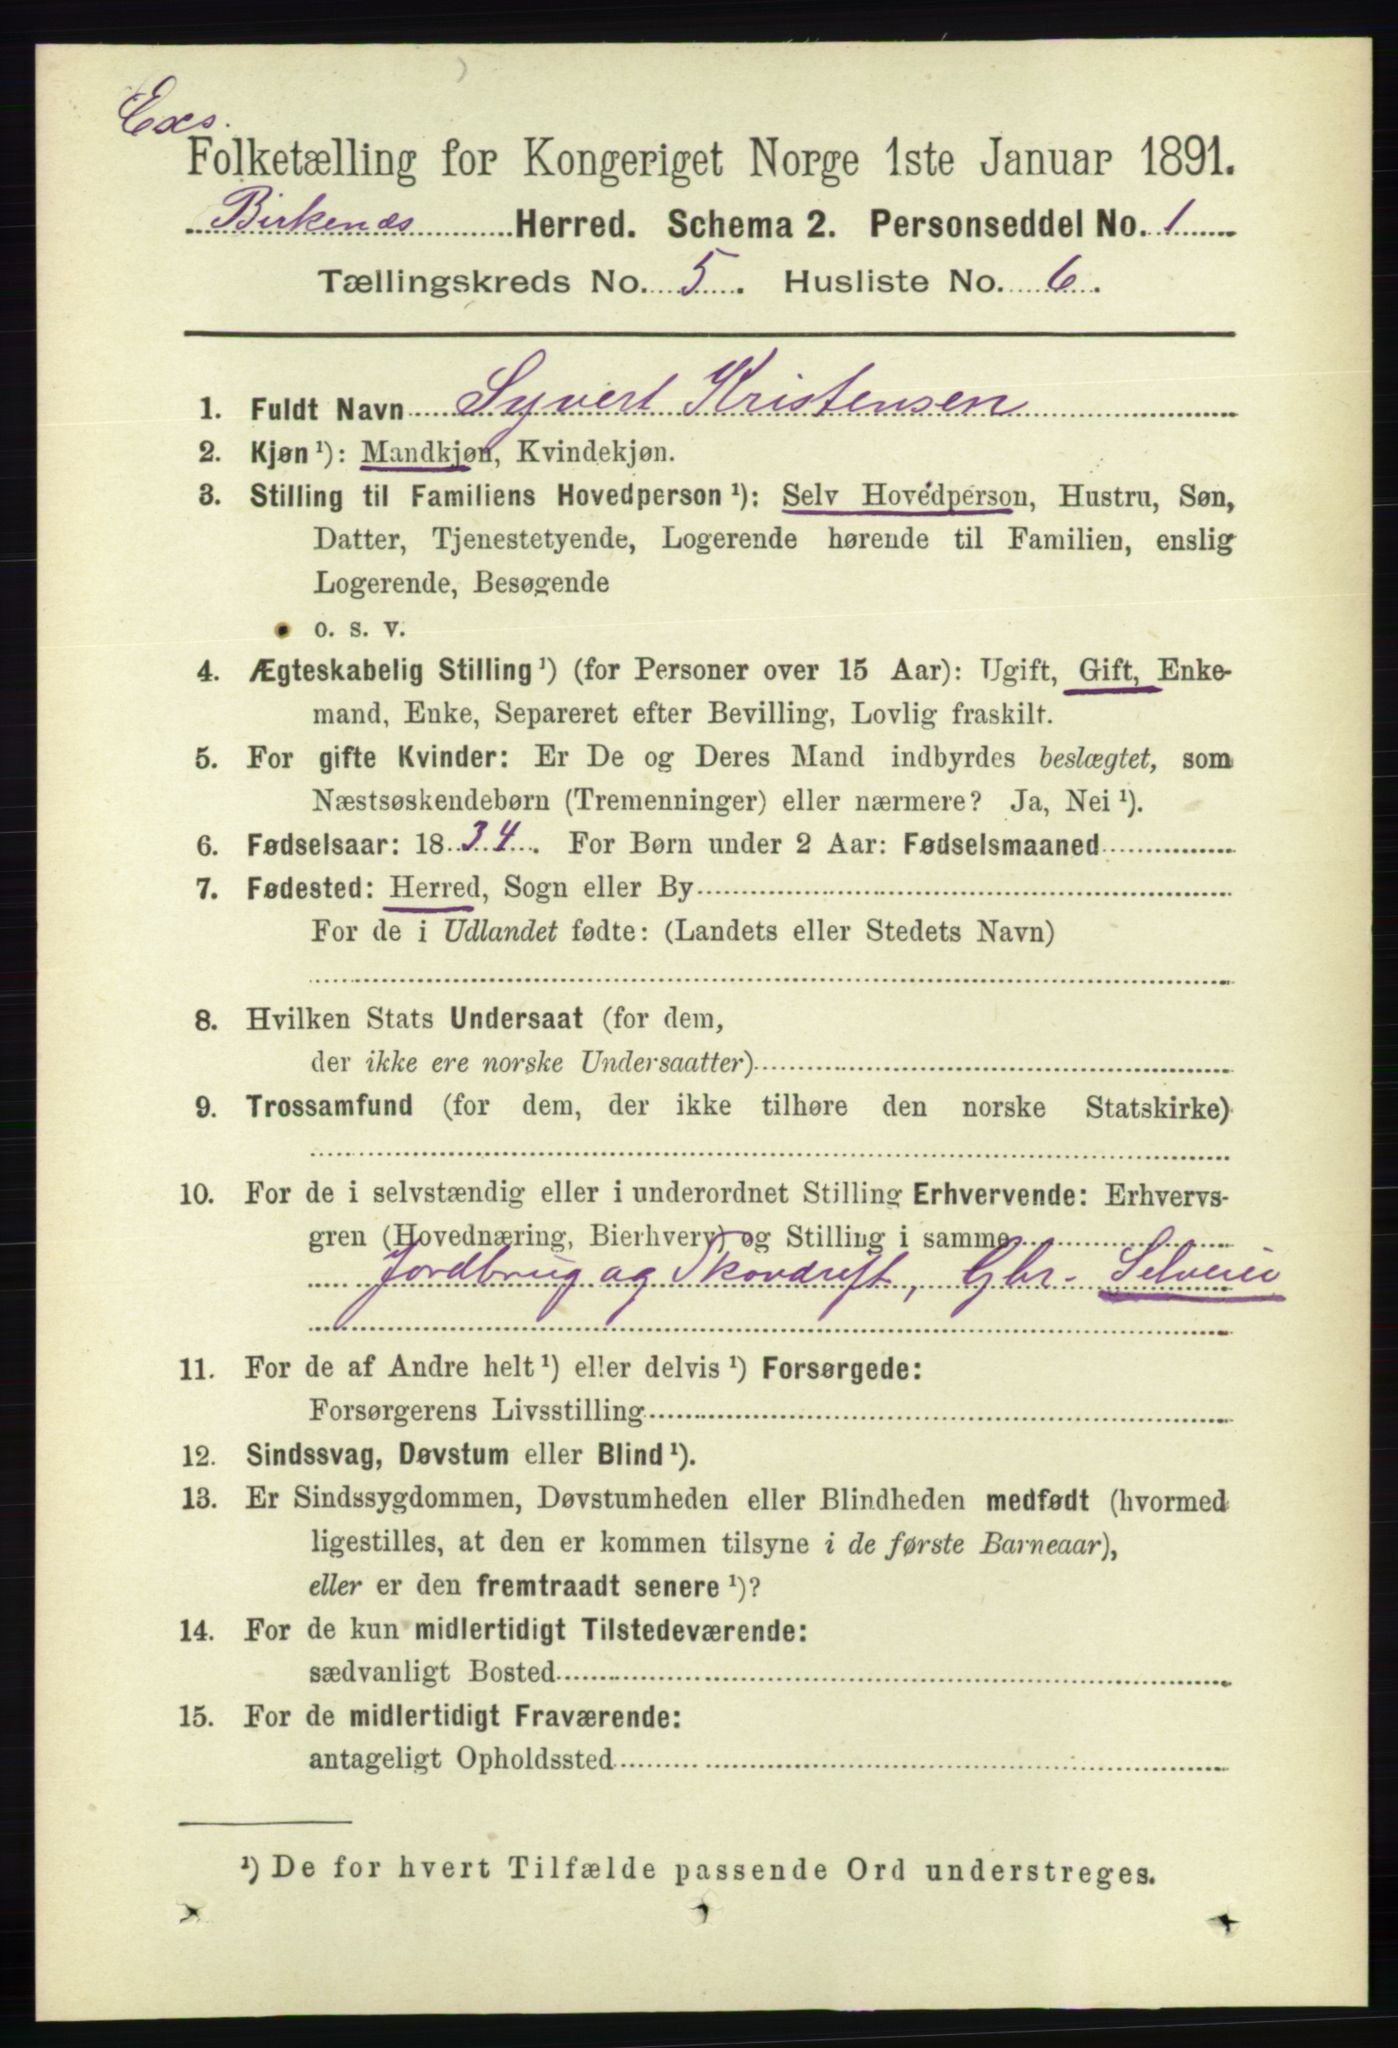 Exs.
Folketælling for Kongeriget Norge 1ste Januar 1891.
Birkenæs Herred. Schema 2. Personseddel No. 1
Tællingskreds No. 5. Husliste No. 6.
1. Fuldt Navn Syvert Kristensen
2. Kjøn ¹): Mandkjøn, Kvindekjøn.
3. Stilling til Familiens Hovedperson ¹): Selv Hovedperson, Hustru, Søn,
Datter, Tjenestetyende, Logerende hørende til Familien, enslig
Logerende, Besøgende
o. s. v.
4. Ægteskabelig Stilling ¹) (for Personer over 15 Aar): Ugift, Gift, Enke-
mand, Enke, Separeret efter Bevilling, Lovlig fraskilt.
5. For gifte Kvinder: Er De og Deres Mand indbyrdes beslægtet, som
Næstsøskendebørn (Tremenninger) eller nærmere? Ja, Nei ¹).
6. Fødselsaar: 1834. For Børn under 2 Aar: Fødselsmaaned
7. Fødested: Herred, Sogn eller By
For de i Udlandet fødte: (Landets eller Stedets Navn)
8. Hvilken Stats Undersaat (for dem,
der ikke ere norske Undersaatter)
9. Trossamfund (for dem, der ikke tilhøre den norske Statskirke)
10. For de i selvstændig eller i underordnet Stilling Erhvervende: Erhvervs-
gren (Hovednæring, Bierhverv) og Stilling i samme
Jordbrug og Skovdrift, Gbr. Selveier
11. For de af Andre helt ¹) eller delvis ¹) Forsørgede:
Forsørgerens Livsstilling
12. Sindssvag, Døvstum eller Blind ¹).
13. Er Sindssygdommen, Døvstumheden eller Blindheden medfødt (hvormed
ligestilles, at den er kommen tilsyne i de første Barneaar),
eller er den fremtraadt senere ¹)?
14. For de kun midlertidigt Tilstedeværende:
sædvanligt Bosted
15. For de midlertidigt Fraværende:
antageligt Opholdssted
¹) De for hvert Tilfælde passende Ord understreges.